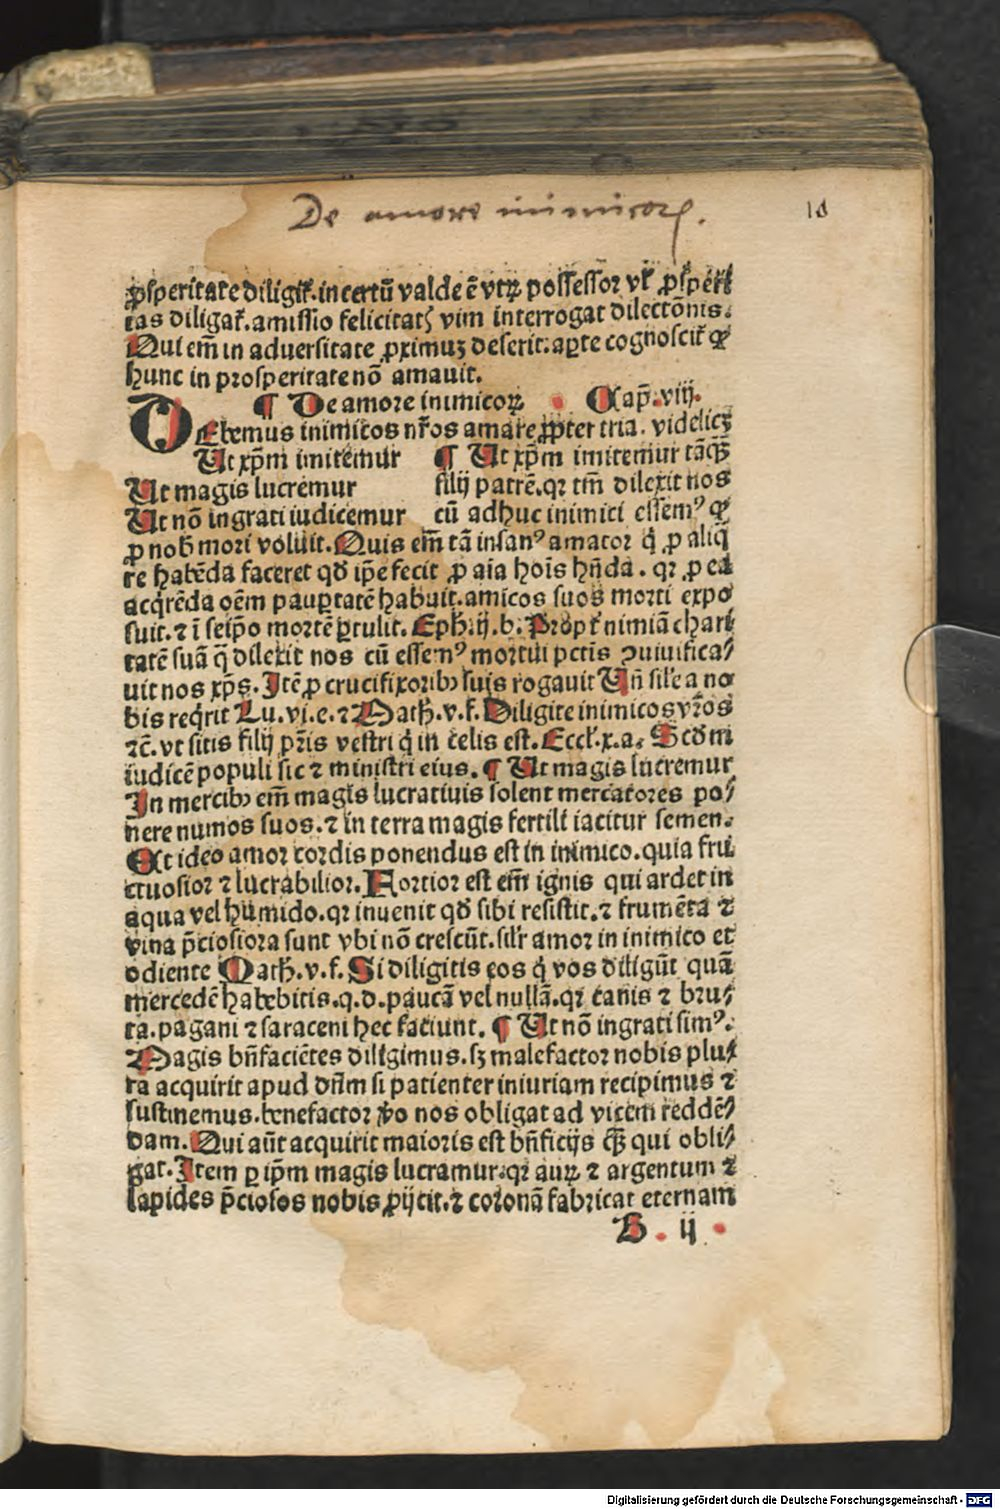 De amore inimicoꝝ.
10
ꝓsperitate diligit̃. incertũ valde ẽ vtꝝ possessor vl̃ ꝓsperi
tas diligat̃. amissio felicitatꝭ vim interrogat dilectõnis.
Qui em̃ in aduersitate ꝓximuꝫ deserit: aꝑte cognoscit̃ ꝙ
hunc in prosperitate nõ amauit.
¶ De amore inimicoꝝ Cap̃. viij.
DEbemus inimicos nr̃os amare ꝓpter tria. videlicꝫ
Ut xp̃m imitemur ¶ Ut xp̃m imitemur tãꝙ̃
Ut magis lucremur filij patrẽ. qꝛ tm̃ dilexit nos
Ut nõ ingrati iudicemur cũ adhuc inimici essemꝰ ꝙ
ꝓ nob̃ mori voluit. Quis em̃ tã insanꝰ amator q̇ ꝓ aliq̃
re habẽda faceret qď ip̃e fecit ꝓ aĩa hoĩs hñda. qꝛ ꝓ ea
acq̇rẽda oẽm pauꝑtatẽ habuit. amicos suos morti expo
suit. ⁊ ĩ seip̃o mortẽ ꝑtulit. Eph̃. ij. b. Propt̃ nimiã chari
tatẽ suã q̃ dilexit nos cũ essemꝰ mortui pctĩs ꝯuiuifica/
uit nos xp̃s. Itẽ ꝓ crucifixoribꝫ suis rogauit Uñ sil̃e a no
bis req̇rit Lu. vi. e. ⁊ Math̃. v. f. Diligite inimicos vr̃os
⁊c̃. vt sitis filij pr̃is vestri q̇ in celis est. Eccl̃. x. a. Scďm
iudicẽ populi sic ⁊ ministri eius. ¶ Ut magis lucremur
In mercibꝫ em̃ magis lucratiuis solent mercatores po/
nere numos suos. ⁊ in terra magis fertili iacitur semen.
Et ideo amor cordis ponendus est in inimico. quia fru
ctuosior ⁊ lucrabilior. Fortior est em̃ ignis qui ardet in
aqua vel humido. qꝛ inuenit qď sibi resistit. ⁊ frumẽta ⁊
vina p̃ciosiora sunt vbi nõ crescũt. sil̃r amor in inimico et
odiente Math̃. v. f. Si diligitis eos q̇ vos diligũt quã
mercedẽ habebitis. q. d. paucã vel nullã. qꝛ canis ⁊ bru/
ta. pagani ⁊ saraceni hec faciunt. ¶ Ut nõ ingrati simꝰ.
Magis bñfaciẽtes diligimus. sꝫ malefactor nobis plu/
ra acquirit apud dñm si patienter iniuriam recipimus ⁊
sustinemus. benefactor ꝟo nos obligat ad vicem reddẽ/
dam. Qui aũt acquirit maioris est bñficijs ꝙ̃ qui obli/
gat. Item ꝑ ip̃m magis lucramur. qꝛ auꝝ ⁊ argentum ⁊
lapides p̃ciosos nobis ꝓijcit. ⁊ coronã fabricat eternam
B . ij .
Digitalisierung gefördert durch die Deutsche Forschungsgemeinschaft - DFG